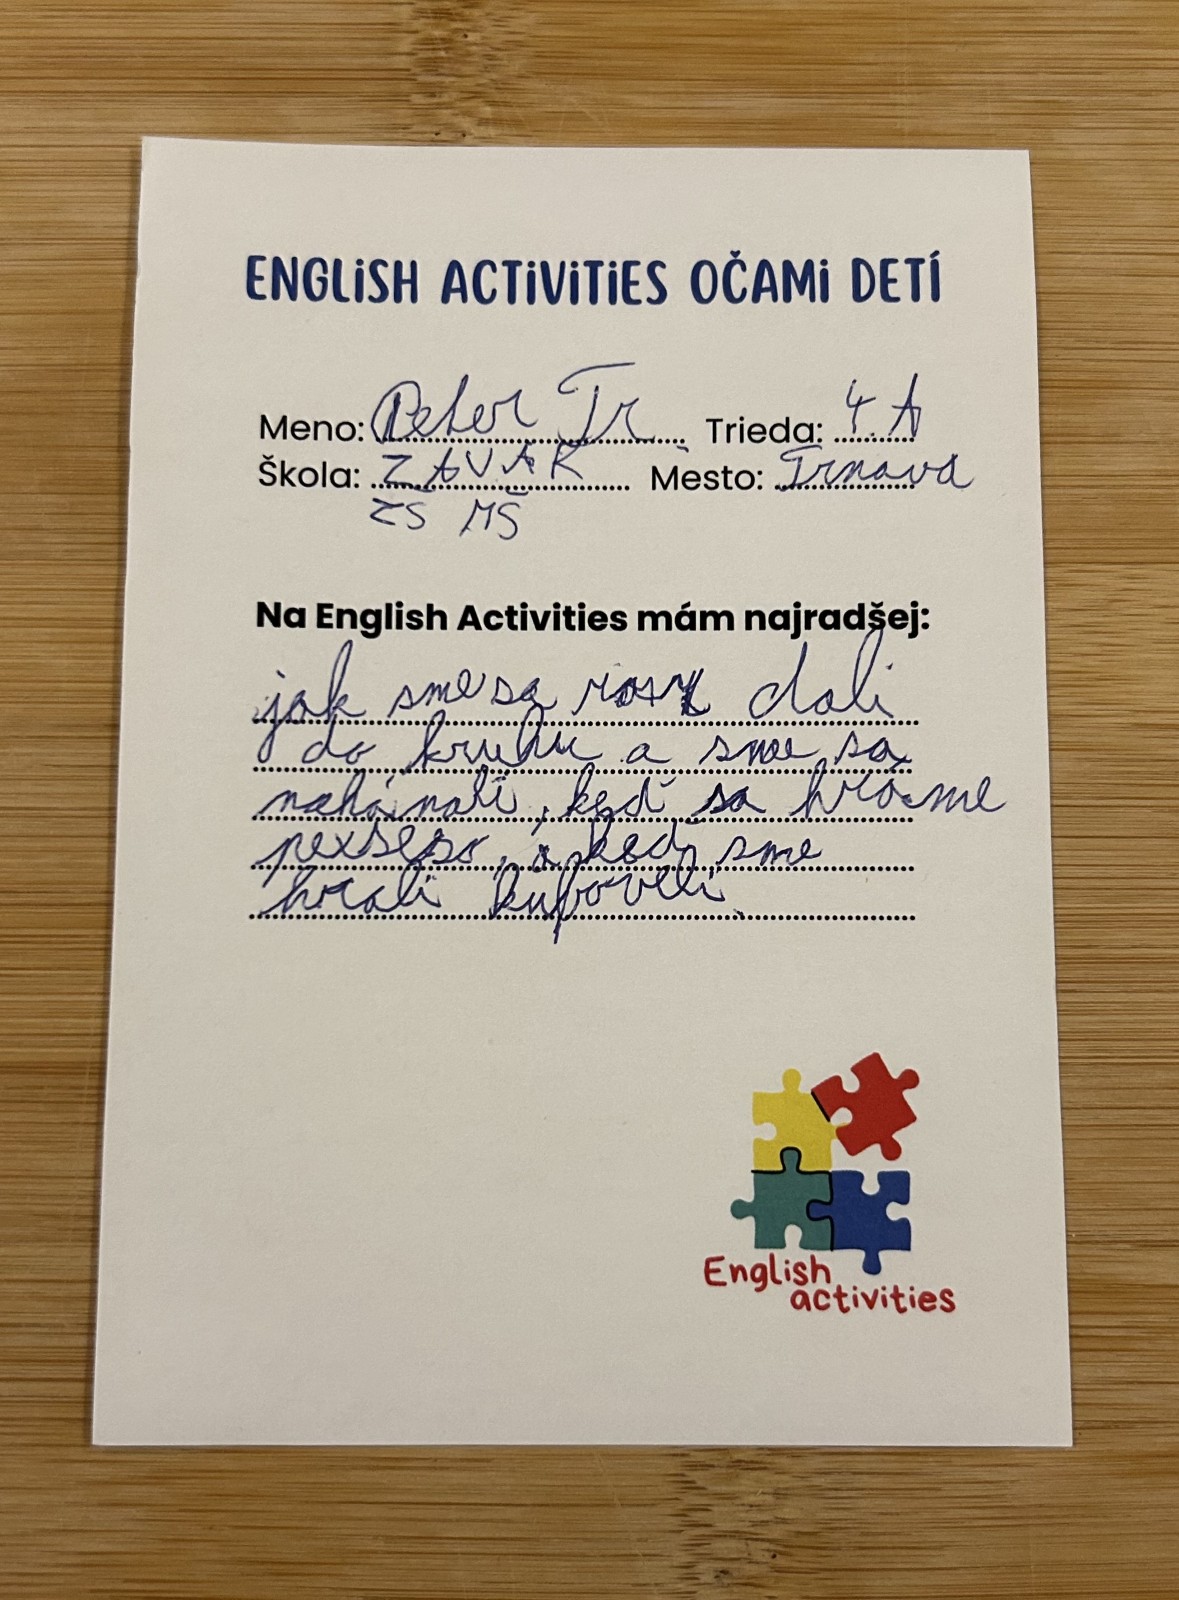 ENGLISH ACTIVITIES OČAMI DETÍ
Meno: Peter Tr Trieda: 4. A
Škola: ZAVAR Mesto: Trnava
ZŠ MŠ
Na English Activities mám najradšej:
jak sme sa dali
do kruhu a sme sa
naháňali, keď sa hráme
pexseso, a keď sme
hrali
English
activities